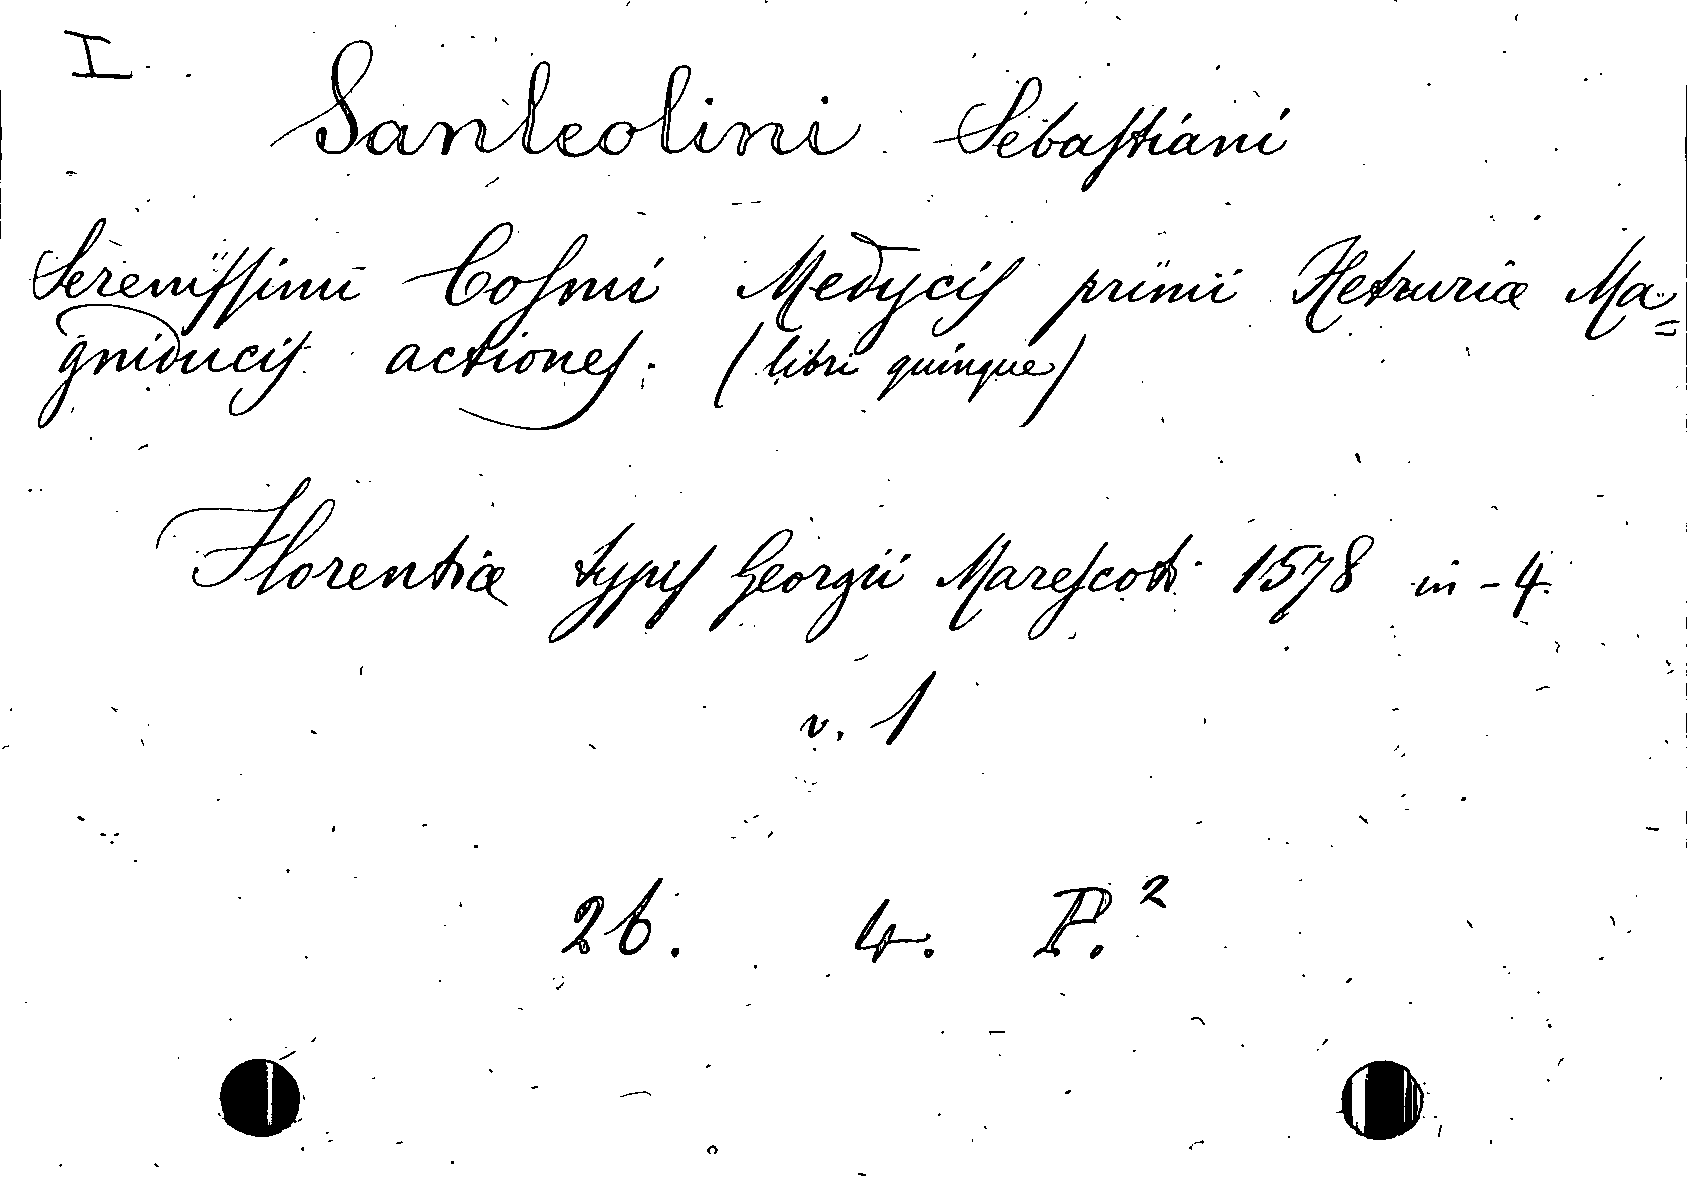 I
Sanleolini Sebastiani
Serenissimi Cosmi Medycis primi Hetruriæ Ma=
gniducis actiones. (libri quinque)
Florentiæ typis Georgii Marescoti 1578 in-4.
v. 1
26. 4. P.²